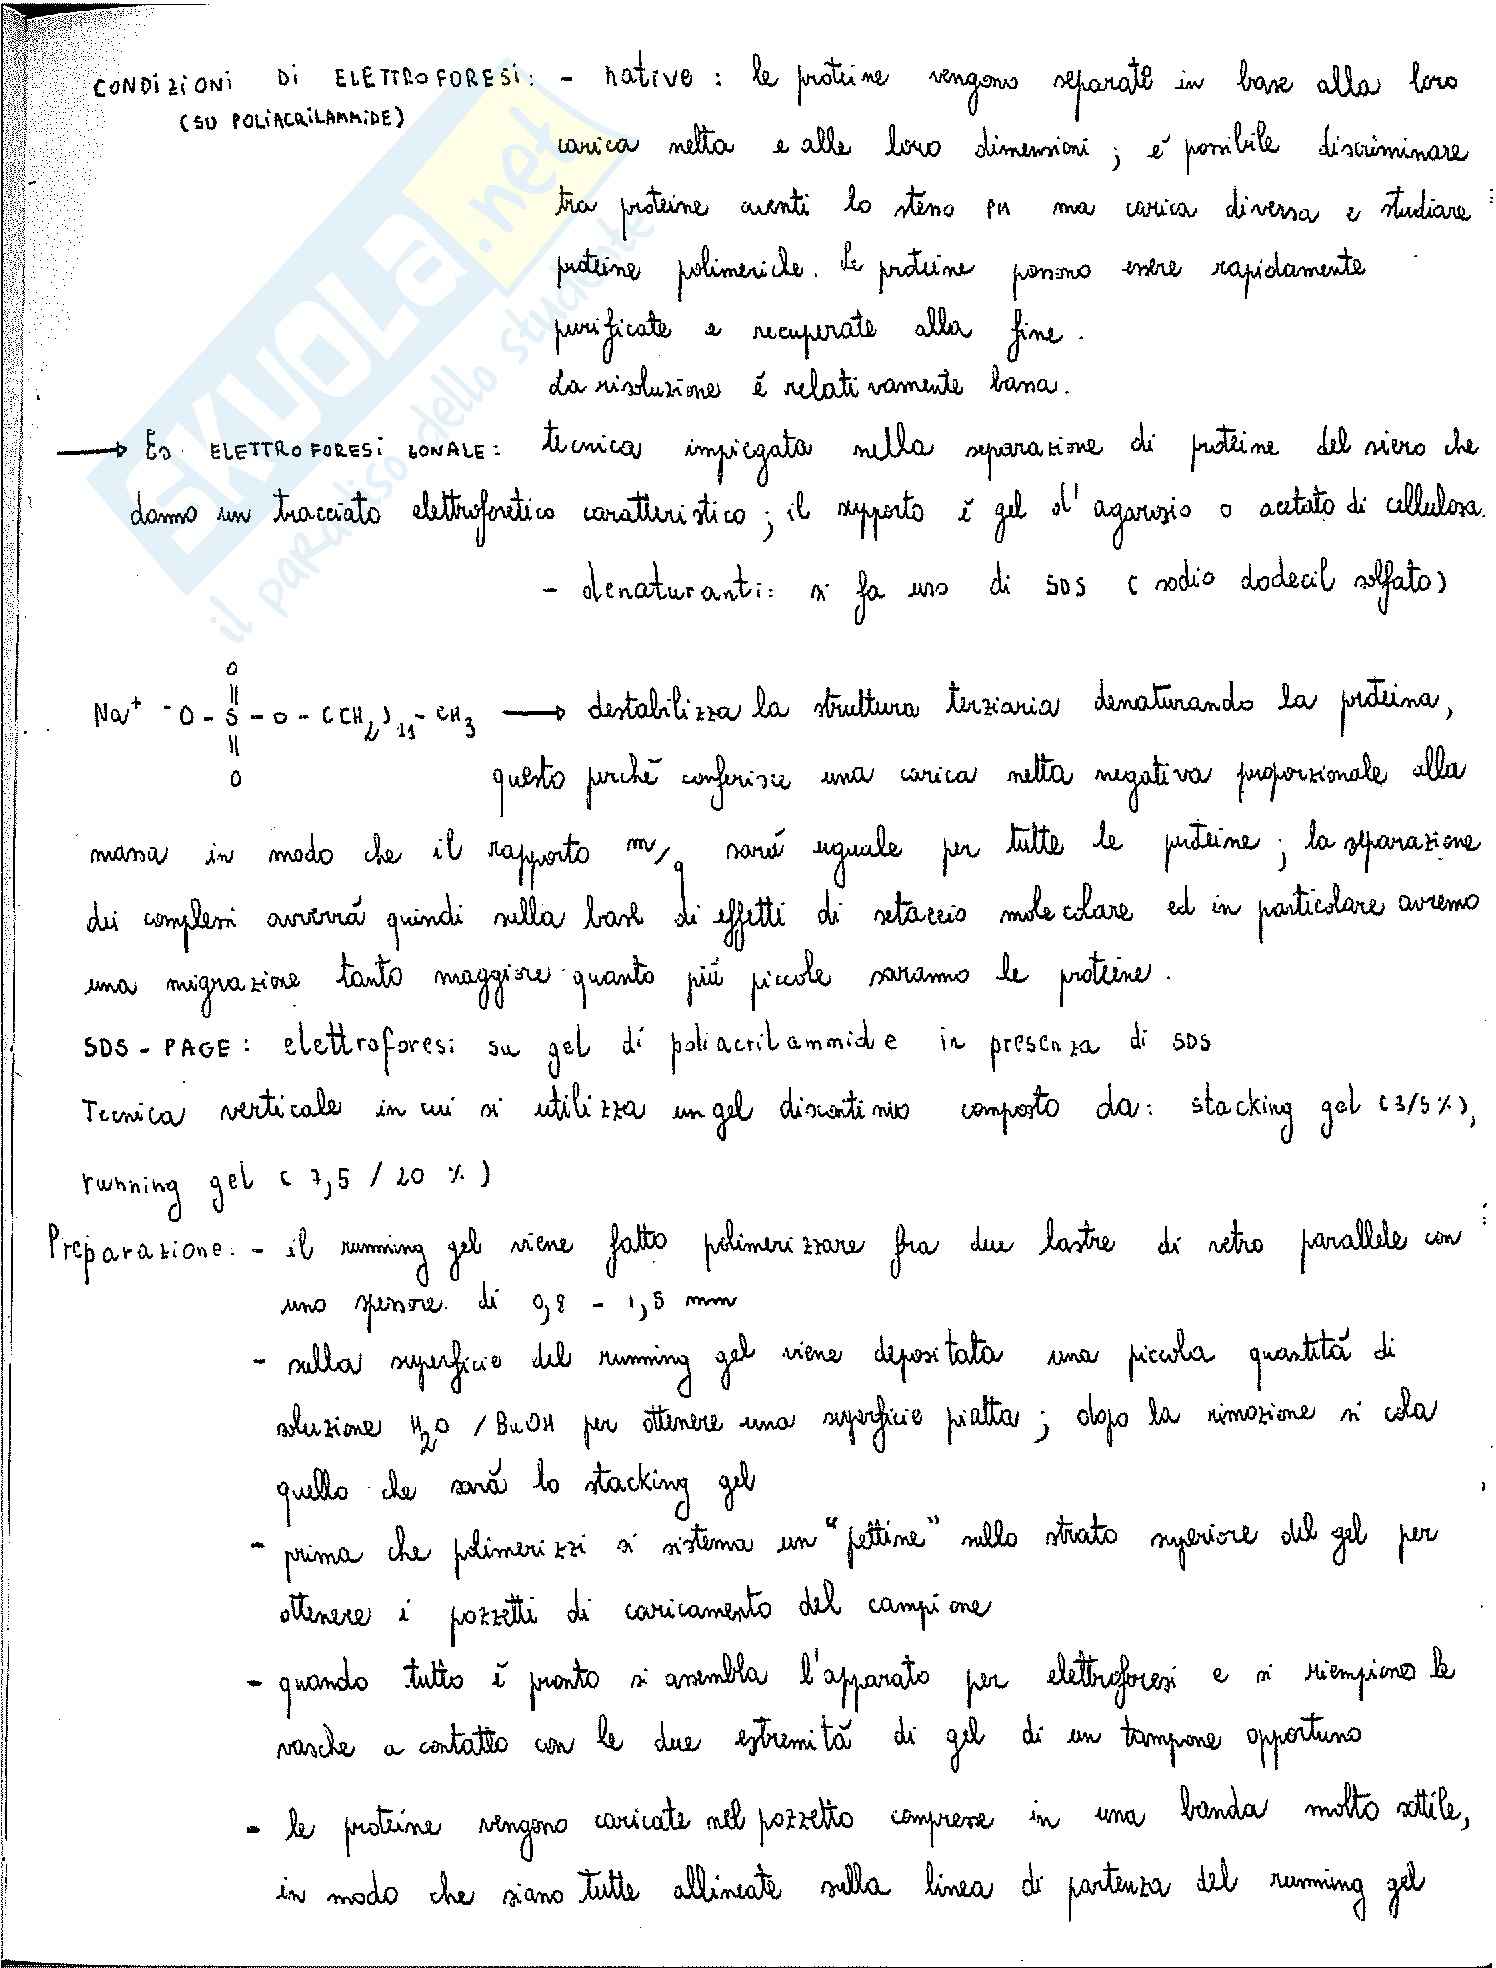 CONDIZIONI DI ELETTROFORESI: - native: le proteine vengono separate in base alla loro
(SU POLIACRILAMMIDE)
carica netta e alle loro dimensioni; é possibile discriminare
tra proteine aventi lo stesso PM ma carica diversa e studiare
proteine polimeriche. Le proteine possono essere rapidamente
purificate e recuperate alla fine.
La risoluzione é relativamente bassa.
→ Es. ELETTROFORESI ZONALE: tecnica impiegata nella separazione di proteine del siero che
danno un tracciato elettroforetico caratteristico; il supporto é gel d'agarosio o acetato di cellulosa.
- denaturanti: si fa uso di SDS (sodio dodecil solfato)
O
Na⁺ ⁻O-S-O-(CH₂)₁₁-CH₃ → destabilizza la struttura terziaria denaturando la proteina,
O
questo perché conferisce una carica netta negativa proporzionale alla
massa in modo che il rapporto m/q sará uguale per tutte le proteine; la separazione
dei complessi avverrá quindi sulla base di effetti di setaccio molecolare ed in particolare avremo
una migrazione tanto maggiore quanto piú piccole saranno le proteine.
SDS-PAGE: elettroforesi su gel di poliacrilammide in presenza di SDS
Tecnica verticale in cui si utilizza un gel discontinuo composto da: stacking gel (3/5%),
running gel (7,5/20%)
Preparazione: - il running gel viene fatto polimerizzare fra due lastre di vetro parallele con
uno spessore di 0,8 - 1,5 mm
- sulla superficie del running gel viene depositata una piccola quantitá di
soluzione H₂O/BuOH per ottenere una superficie piatta; dopo la rimozione si cola
quello che sará lo stacking gel
- prima che polimerizzi si sistema un "pettine" nello strato superiore del gel per
ottenere i pozzetti di caricamento del campione
- quando tutto é pronto si assembla l'apparato per elettroforesi e si riempiono le
vasche a contatto con le due estremitá di gel di un tampone opportuno
- le proteine vengono caricate nel pozzetto compresse in una banda molto sottile,
in modo che siano tutte allineate sulla linea di partenza del running gel
SKUOLA.net
il paradiso dello studente